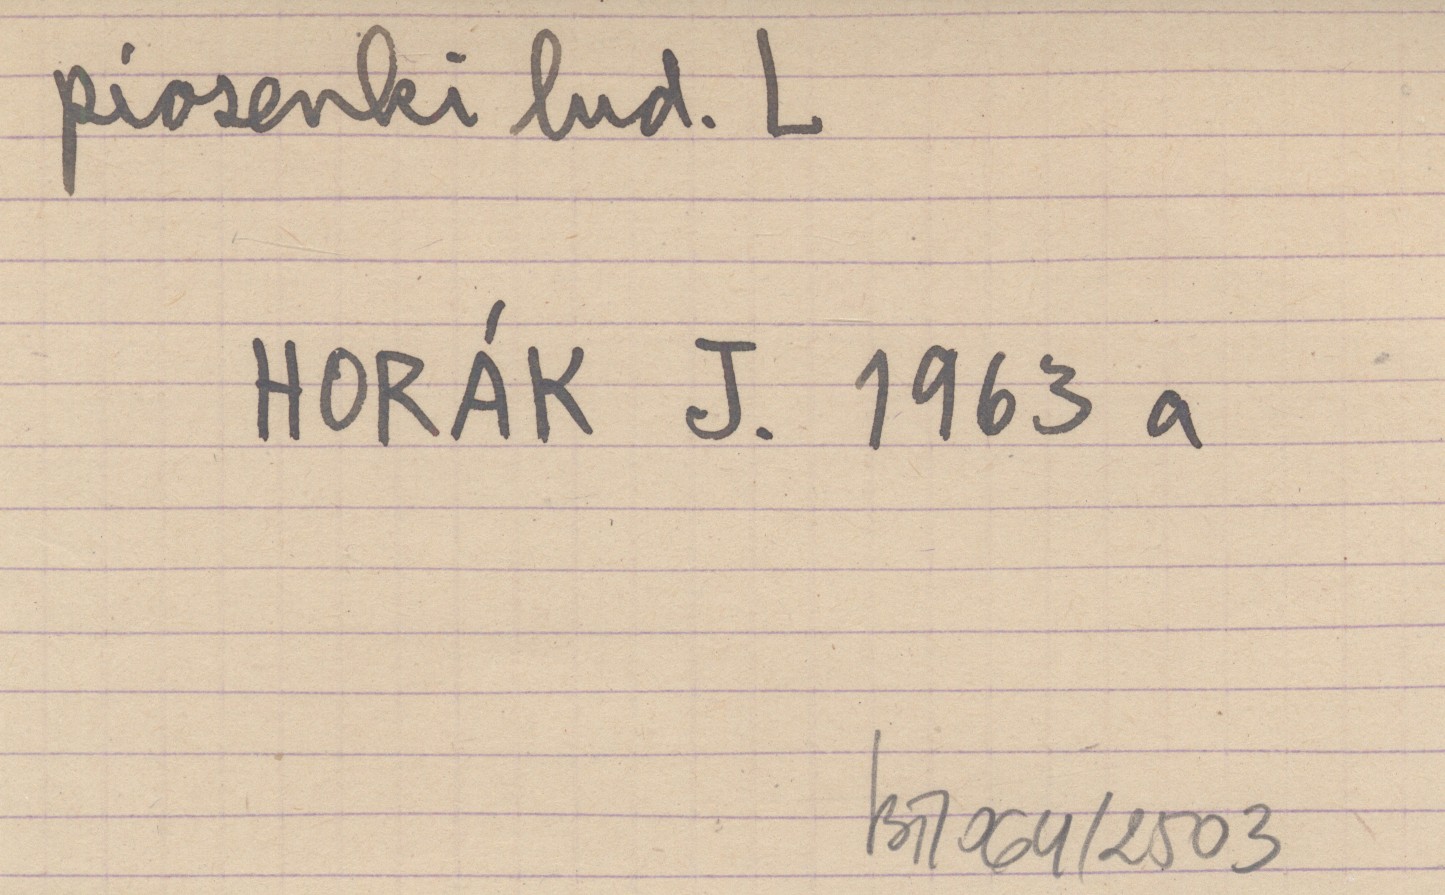 piosenki lud. L
HORÁK J. 1963 a
064/2503